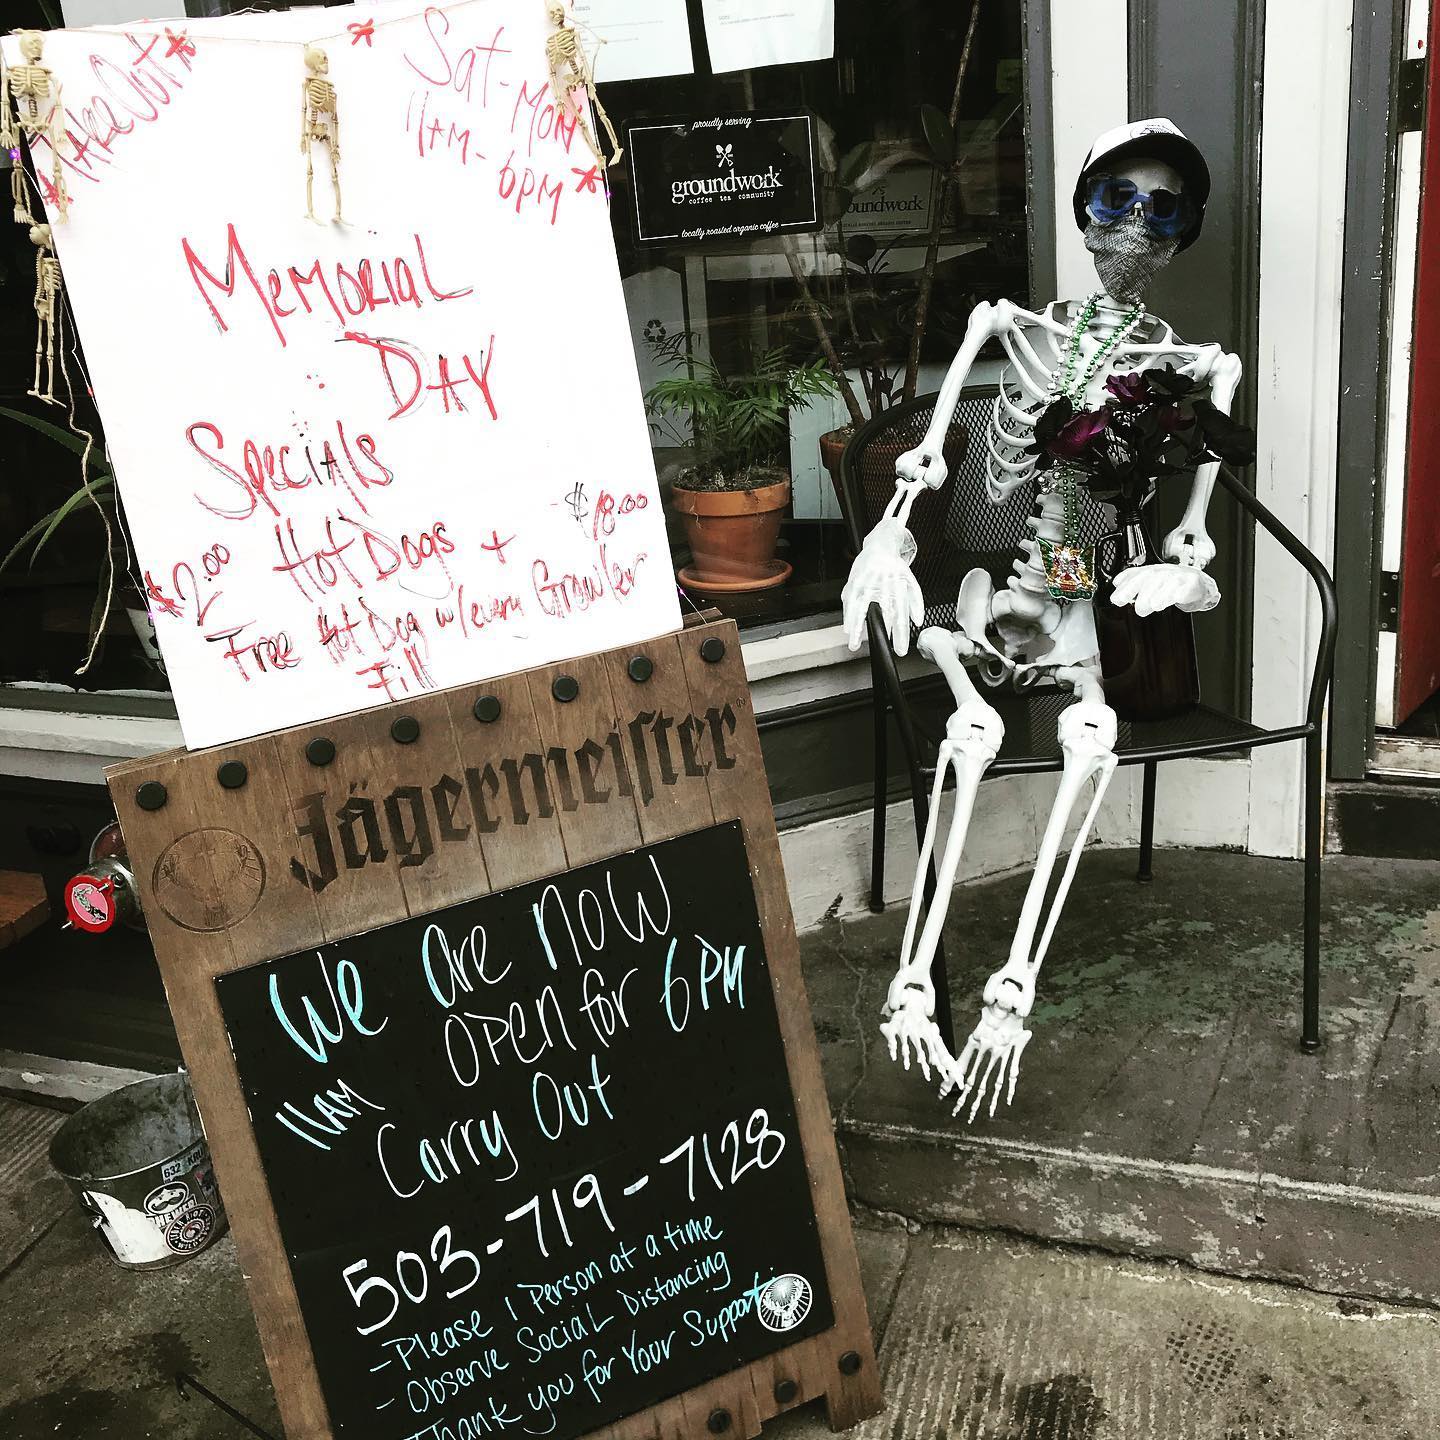 *Take Out*
* Sat-Mon
11am-
6pm *
Memorial
Day
Specials
$2.00 Hot Dogs + $18.00
Free Hot Dog w/every Growler
Fill
Jägermeister
We are now
open for 6PM
11AM
Carry Out
503-719-7128
- Please 1 Person at a time
- Observe Social Distancing
Thank you for Your Support
proudly serving
groundwork
coffee tea community
locally roasted organic coffee
undwork
632